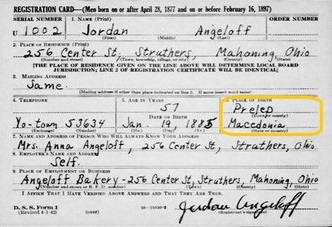 REGISTRATION CARD—(Men born on or after April 28, 1877 and on or before February 16, 1897)
SERIAL NUMBER 1. NAME (Print) ORDER NUMBER
U 1002 Jordan Angeloff
2. PLACE OF RESIDENCE (Print)
256 Center St, Struthers, Mahoning, Ohio
(Number and street) (Town, township, village, or city) (County) (State)
[THE PLACE OF RESIDENCE GIVEN ON THE LINE ABOVE WILL DETERMINE LOCAL BOARD
JURISDICTION; LINE 2 OF REGISTRATION CERTIFICATE WILL BE IDENTICAL]
3. MAILING ADDRESS
Same.
4. TELEPHONE 5. AGE IN YEARS 6. PLACE OF BIRTH
57 Prelep
DATE OF BIRTH (Town or county)
Yo-town 53634 Jan. 19, 1885 Macedonia
(Exchange) (Number) (Mo.) (Day) (Yr.) (State or country)
7. NAME AND ADDRESS OF PERSON WHO WILL ALWAYS KNOW YOUR ADDRESS
Mrs. Anna Angeloff, 256 Center St, Struthers, Ohio
8. EMPLOYER'S NAME AND ADDRESS
Self.
9. PLACE OF EMPLOYMENT OR BUSINESS
Angeloff Bakery - 256 Center St, Struthers, Mahoning, Ohio
(Number and street or R. F. D. number) (Town) (County) (State)
I AFFIRM THAT I HAVE VERIFIED ABOVE ANSWERS AND THAT THEY ARE TRUE.
D. S. S. Form 1
(Revised 4-1-42)
Jordan Angeloff